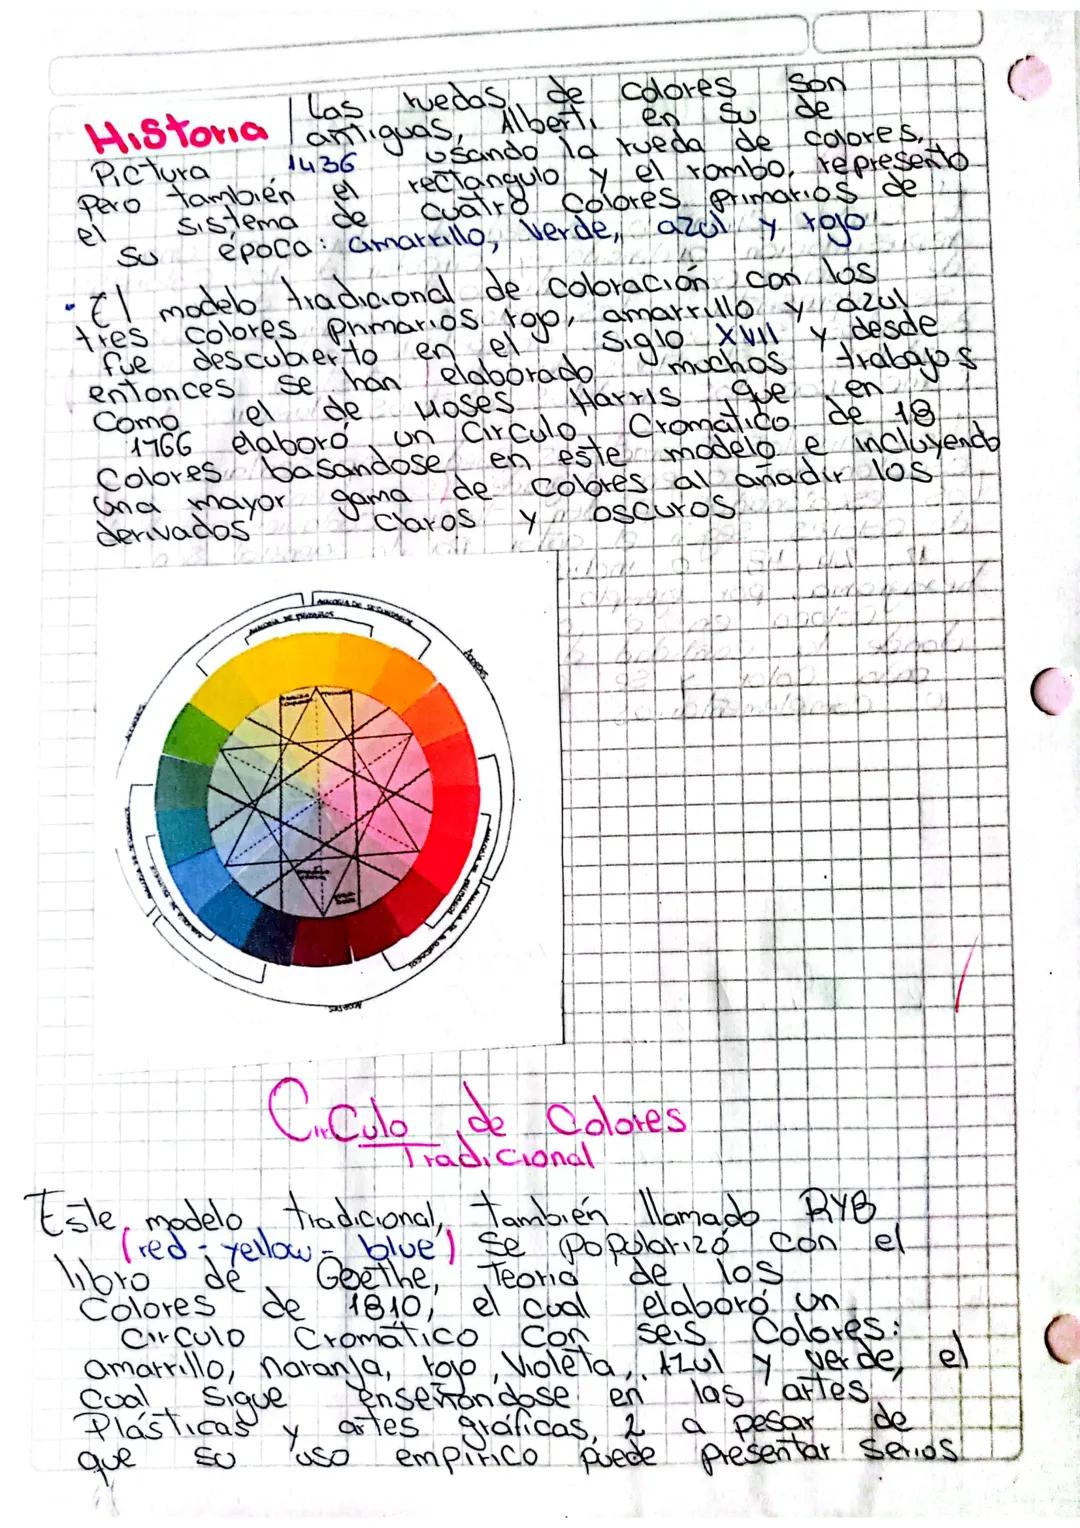 Historia
Las ruedas de colores son
antiguas, Alberti en su de
Pictura 1436 usando la rueda de colores,
Pero también el rectangulo y el rombo, represento
el sistema de cuatro colores primarios de
su epoca: amarrillo, Verde, azul y rojo
• El modelo tradicional de coloración con los
tres colores primarios rojo, amarrillo y azul
fue descubierto en el siglo XVII y desde
entonces se han elaborado muchos trabajos
Como el de Moses Harris que en
1766 elaboró un Circulo Cromático de 18
Colores basandose en este modelo e incluyendo
una mayor gama de colores al añadir los
derivados Claros y oscuros
ANALOGIA DE SECUNDARIOS
ANALOGIA DE PRIMARIOS
ACORDES
ACORDES
ACORDES
Circulo de Colores
Tradicional
Este modelo tradicional, también llamado RYB
(red-yellow-blue) se popularizó con el
libro de Goethe, Teoria de los
Colores de 1810, el cual elaboró un
Circulo Cromático con seis Colores:
amarrillo, naranja, rojo, Violeta, Azul y verde, el
Cual sigue enseñandose en las artes
Plásticas y artes gráficas, 2 a pesar de
que su uso empírico puede presentar serios